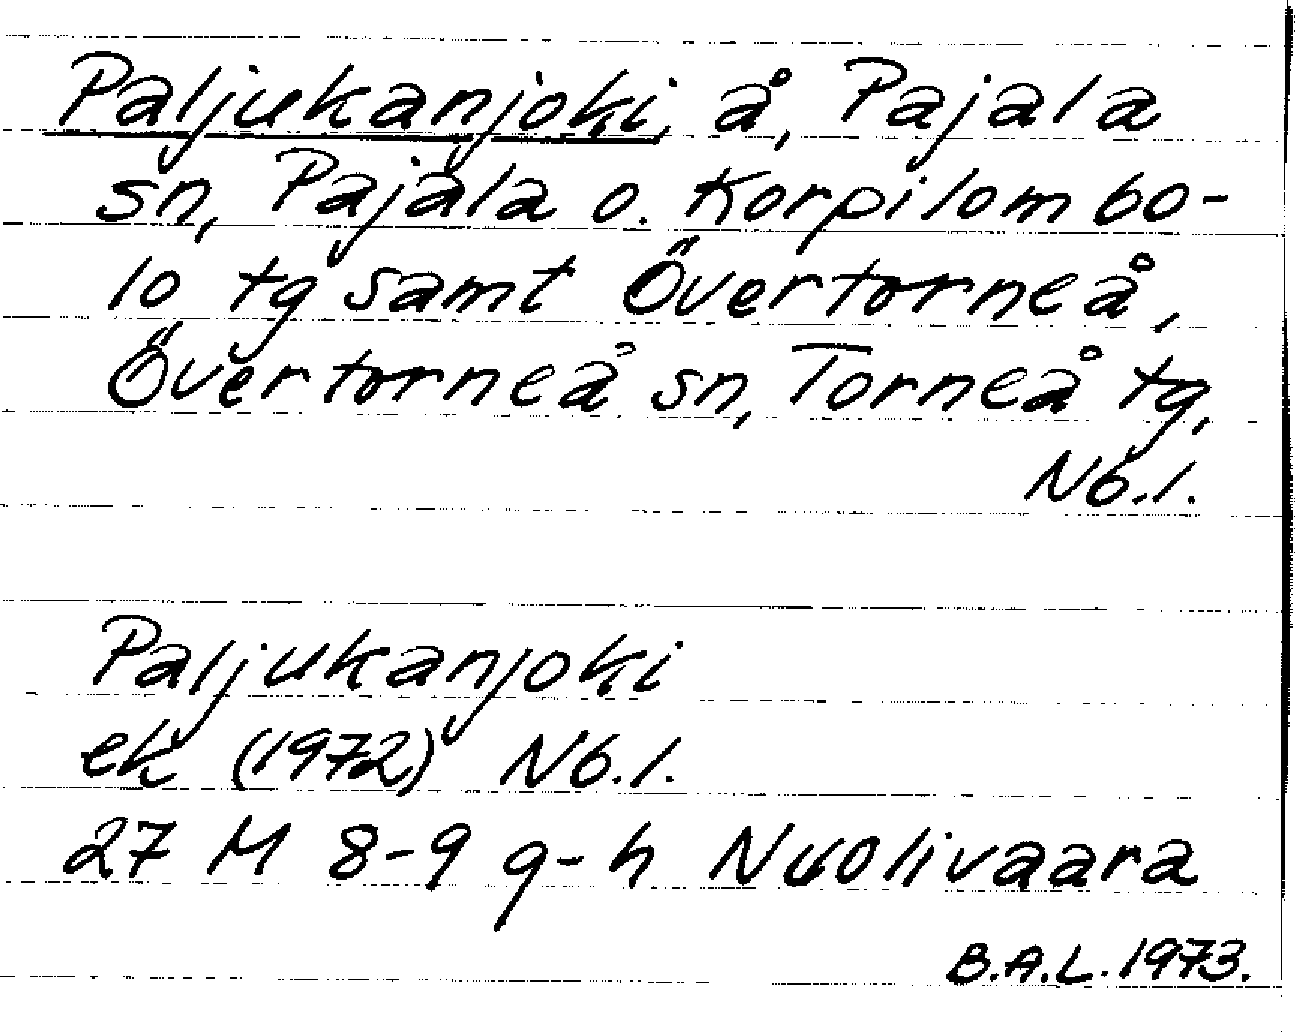 Paljukanjoki, å, Pajala
sn, Pajala o. Korpilombo-
lo tg samt Övertorneå,
Övertorneå sn, Torneå tg,
Nb.l.
Paljukanjoki
ek (1972) Nb.l.
27 M 8-9 g-h Nuolivaara
B.A.L. 1973.